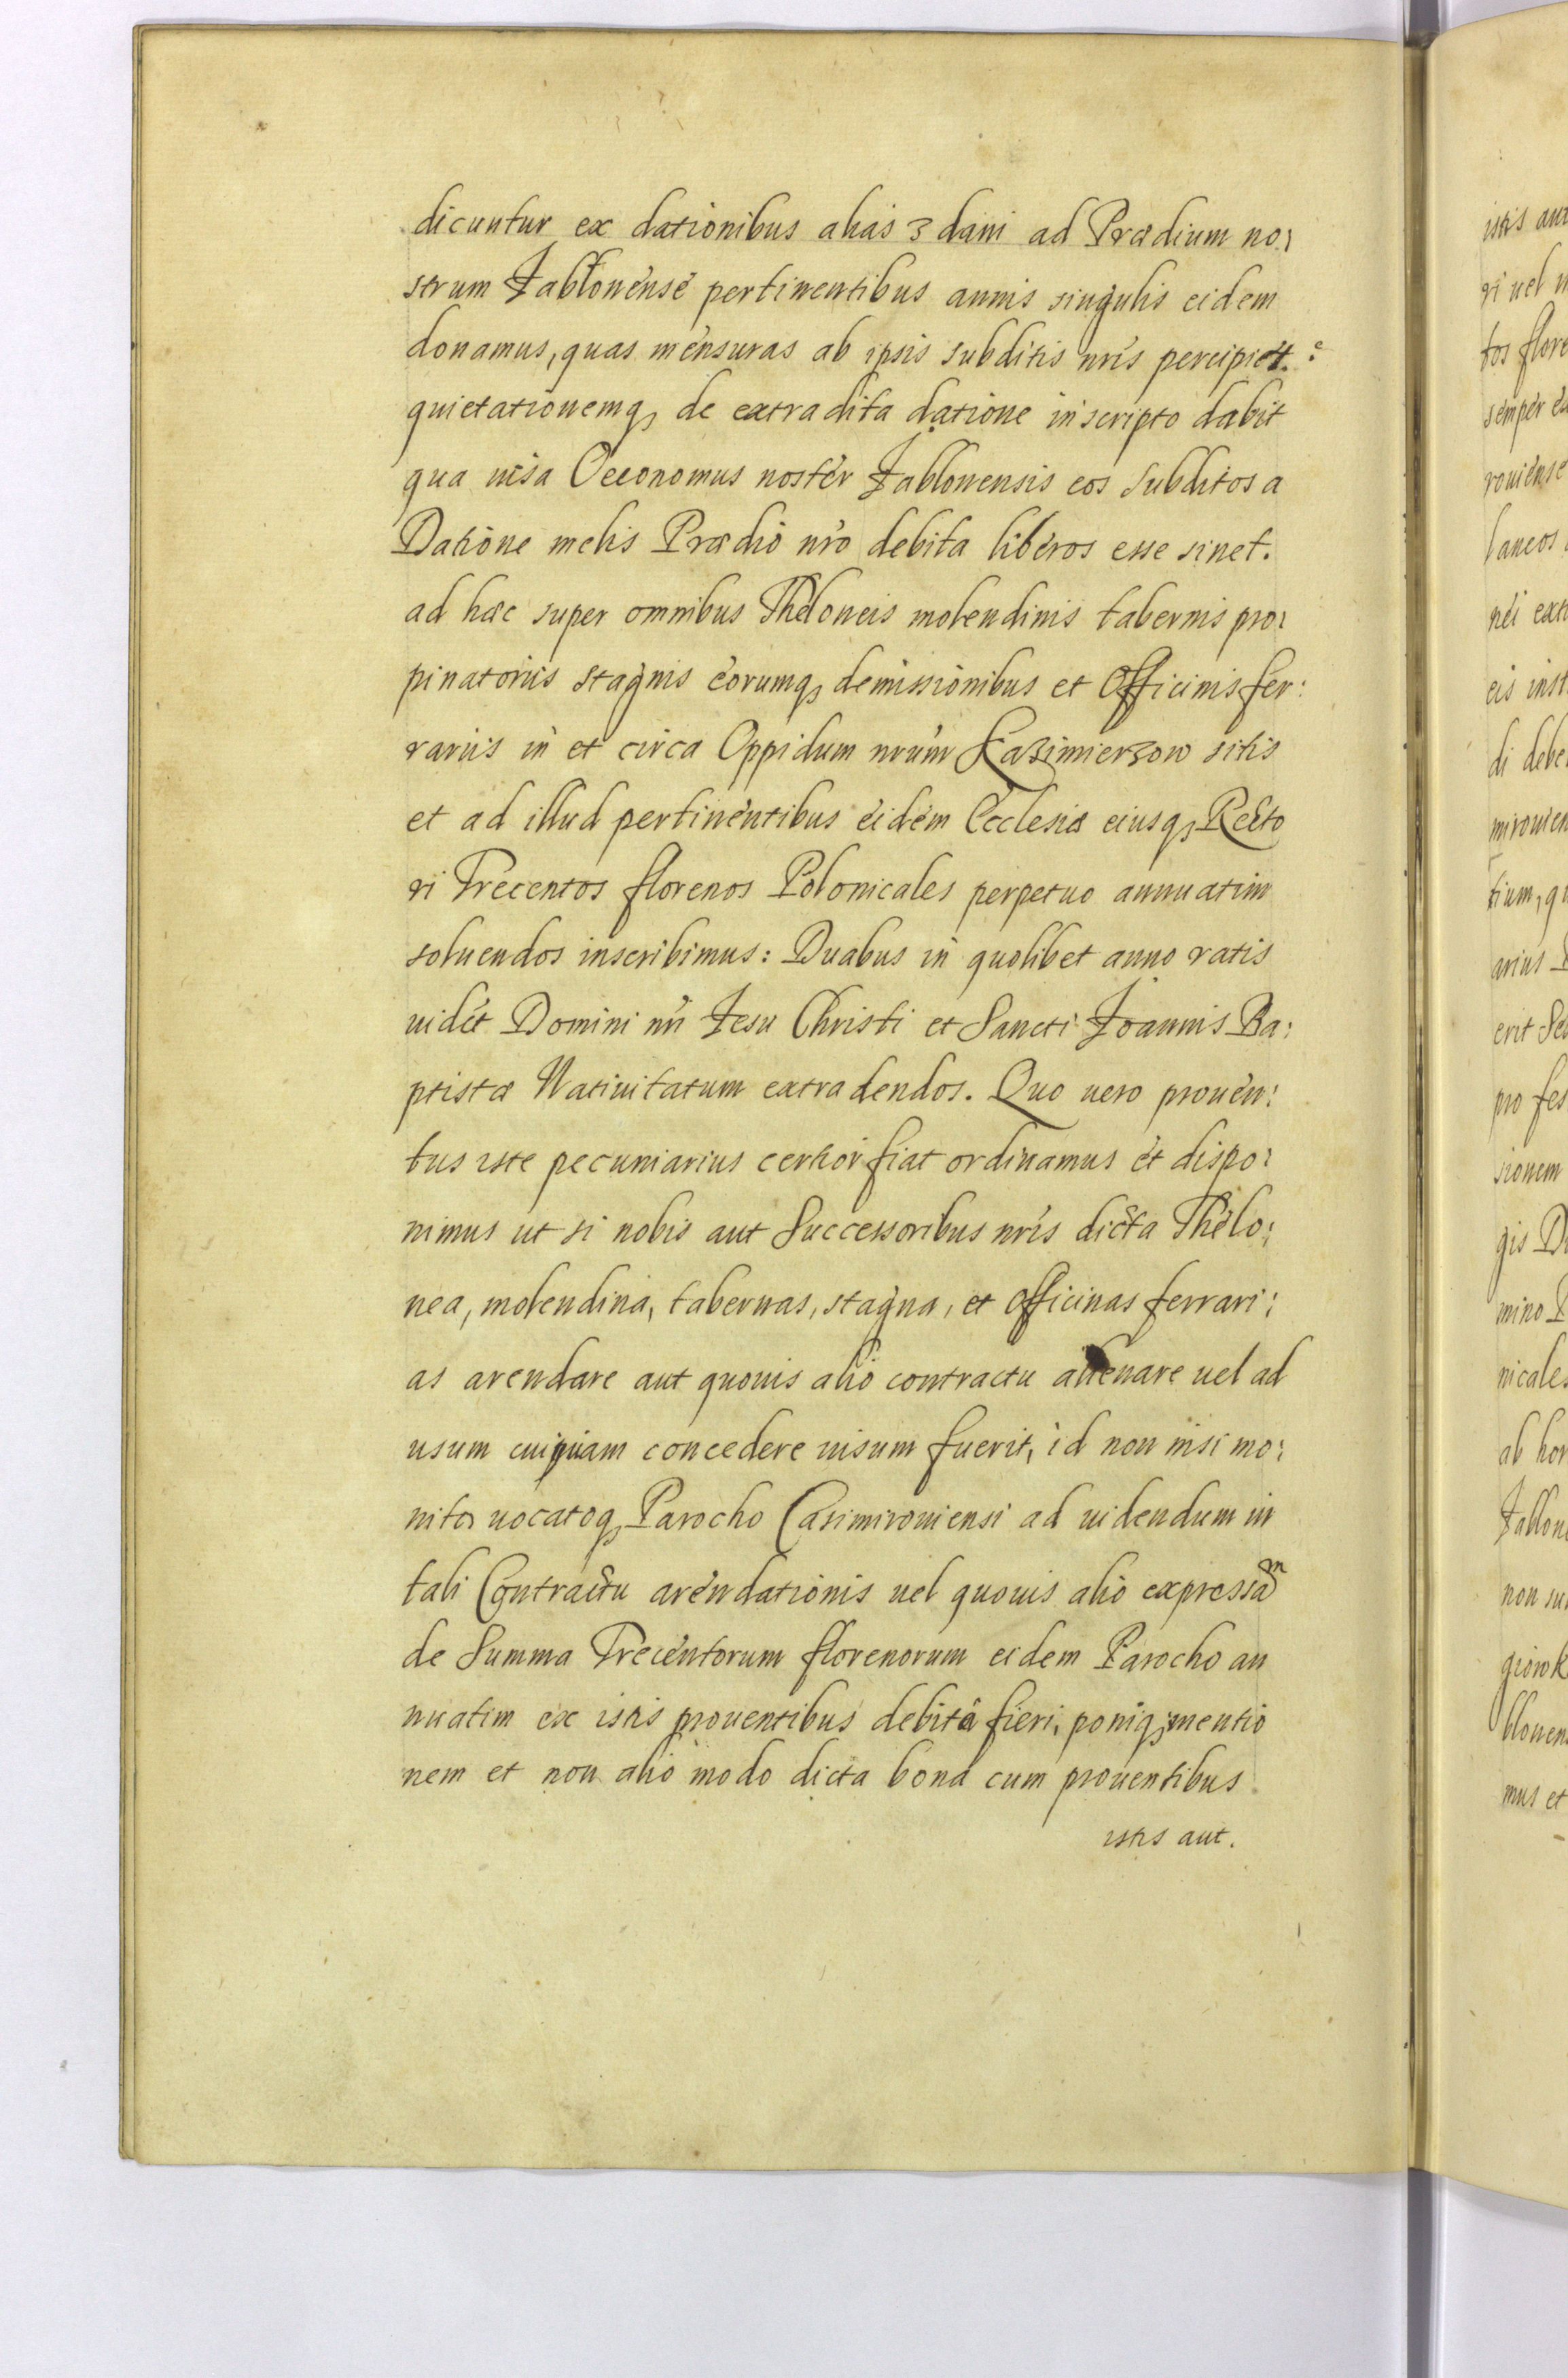 dicuntur ex dationibus alias z dani ad Prædium no:
strum Jabłonense pertinentibus annis singulis eidem
donamus, quas mensuras ab ipsis subditis nris percipiet.
quietationemq; de extradita datione in scripto dabit
qua visa Oeconomus noster Jablonensis eos subditos a
Datione melis Prædio nro debita liberos esse sinet.
ad hæc super omnibus Theloneis molendinis tabernis pro:
pinatoriis stagnis eorumq; demissionibus et Officinis fer:
rariis in et circa Oppidum nrum Kazimierzow sitis
et ad illud pertinentibus eidem Ecclesiæ eiusq; Recto
ri Trecentos florenos Polonicales perpetuo annuatim
soluendos inscribimus: Duabus in quolibet anno ratis
uidet Domini nri Jesu Christi et Sancti Joannis Ba:
ptistæ Natiuitatum extradendos. Quo uero prouen:
tus iste pecuniarius certior fiat ordinamus et dispo:
nimus ut si nobis aut Successoribus nris dicta Thelo:
nea, molendina, tabernas, stagna, et officinas ferrari:
as arendare aut quouis alio contractu alienare uel ad
usum cuipiam concedere uisum fuerit, id non nisi mo:
nito uocatoq; Parocho Casimirouiensi ad uidendum in
tali Contractu arendationis uel quouis alio expressam
de Summa Trecentorum florenorum eidem Parocho an
nuatim ex istis prouentibus debita fieri, poniq; mentio
nem et non alio modo dicta bona cum prouentibus
istis aut.